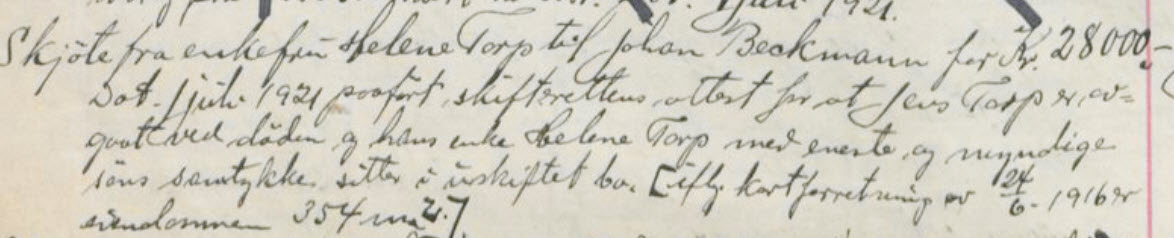 1921.
Skjöte fra enkefru Helene Torp til Johan Beckmann for Kr. 28000,-
Dat. 1 juli 1921 paaført skifterettens attest for at Jens Torp er av=
gaatt ved döden og hans enke Helene Torp med eneste og myndige
söns samtykke sitter i uskiftet bo. [iflg. kartforretning av 24/6. 1916 er
eiendommen 354 m2.]